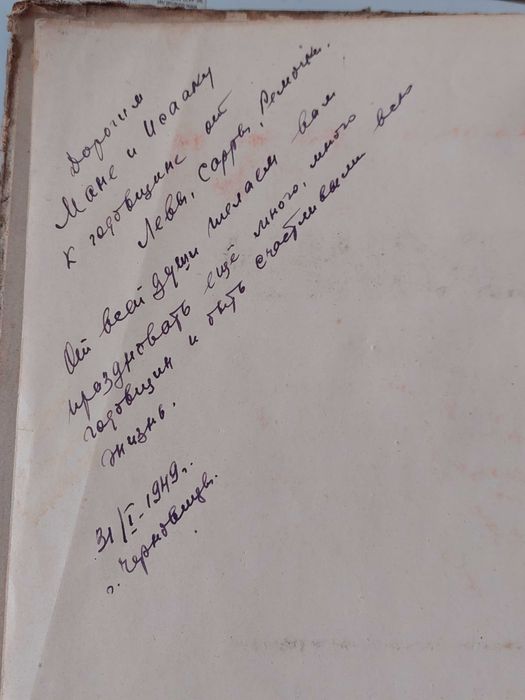 Дорогим
Мане и Исааку
к годовщине от
Левы, Сарры, Ромочки.
От всей души желаем вам
праздновать ещё много, много
годовщин и быть счастливыми всю
жизнь.
31/I-1949г.
г. Черновицы.